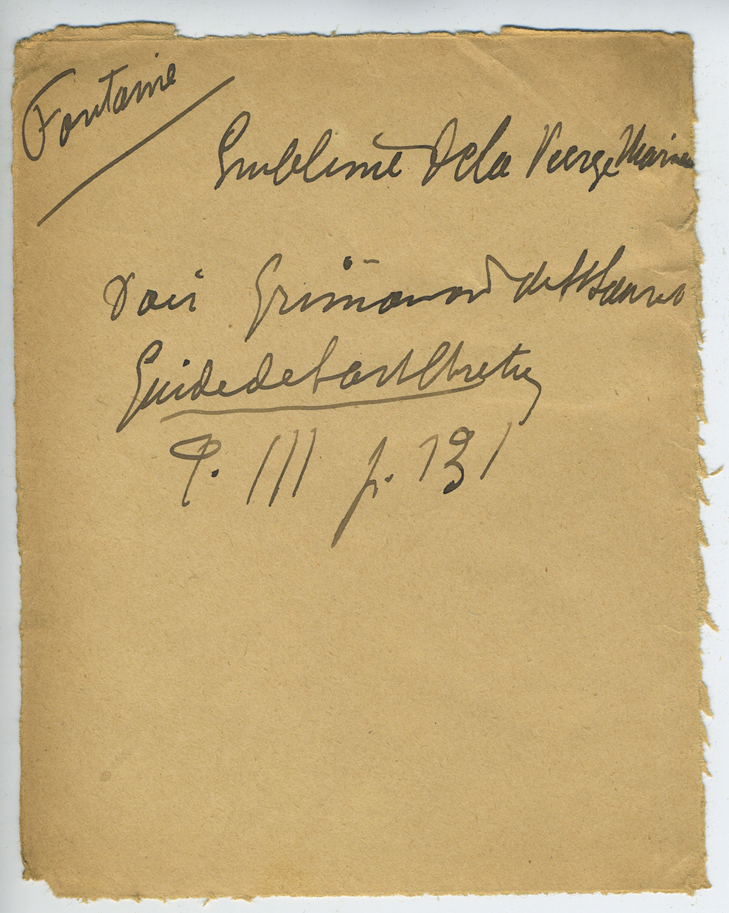 Fontaine
Emblème de la Vierge Marie
Voir Grimouard de St Laurent
Guide de l'art Chretien
T. III p. 131